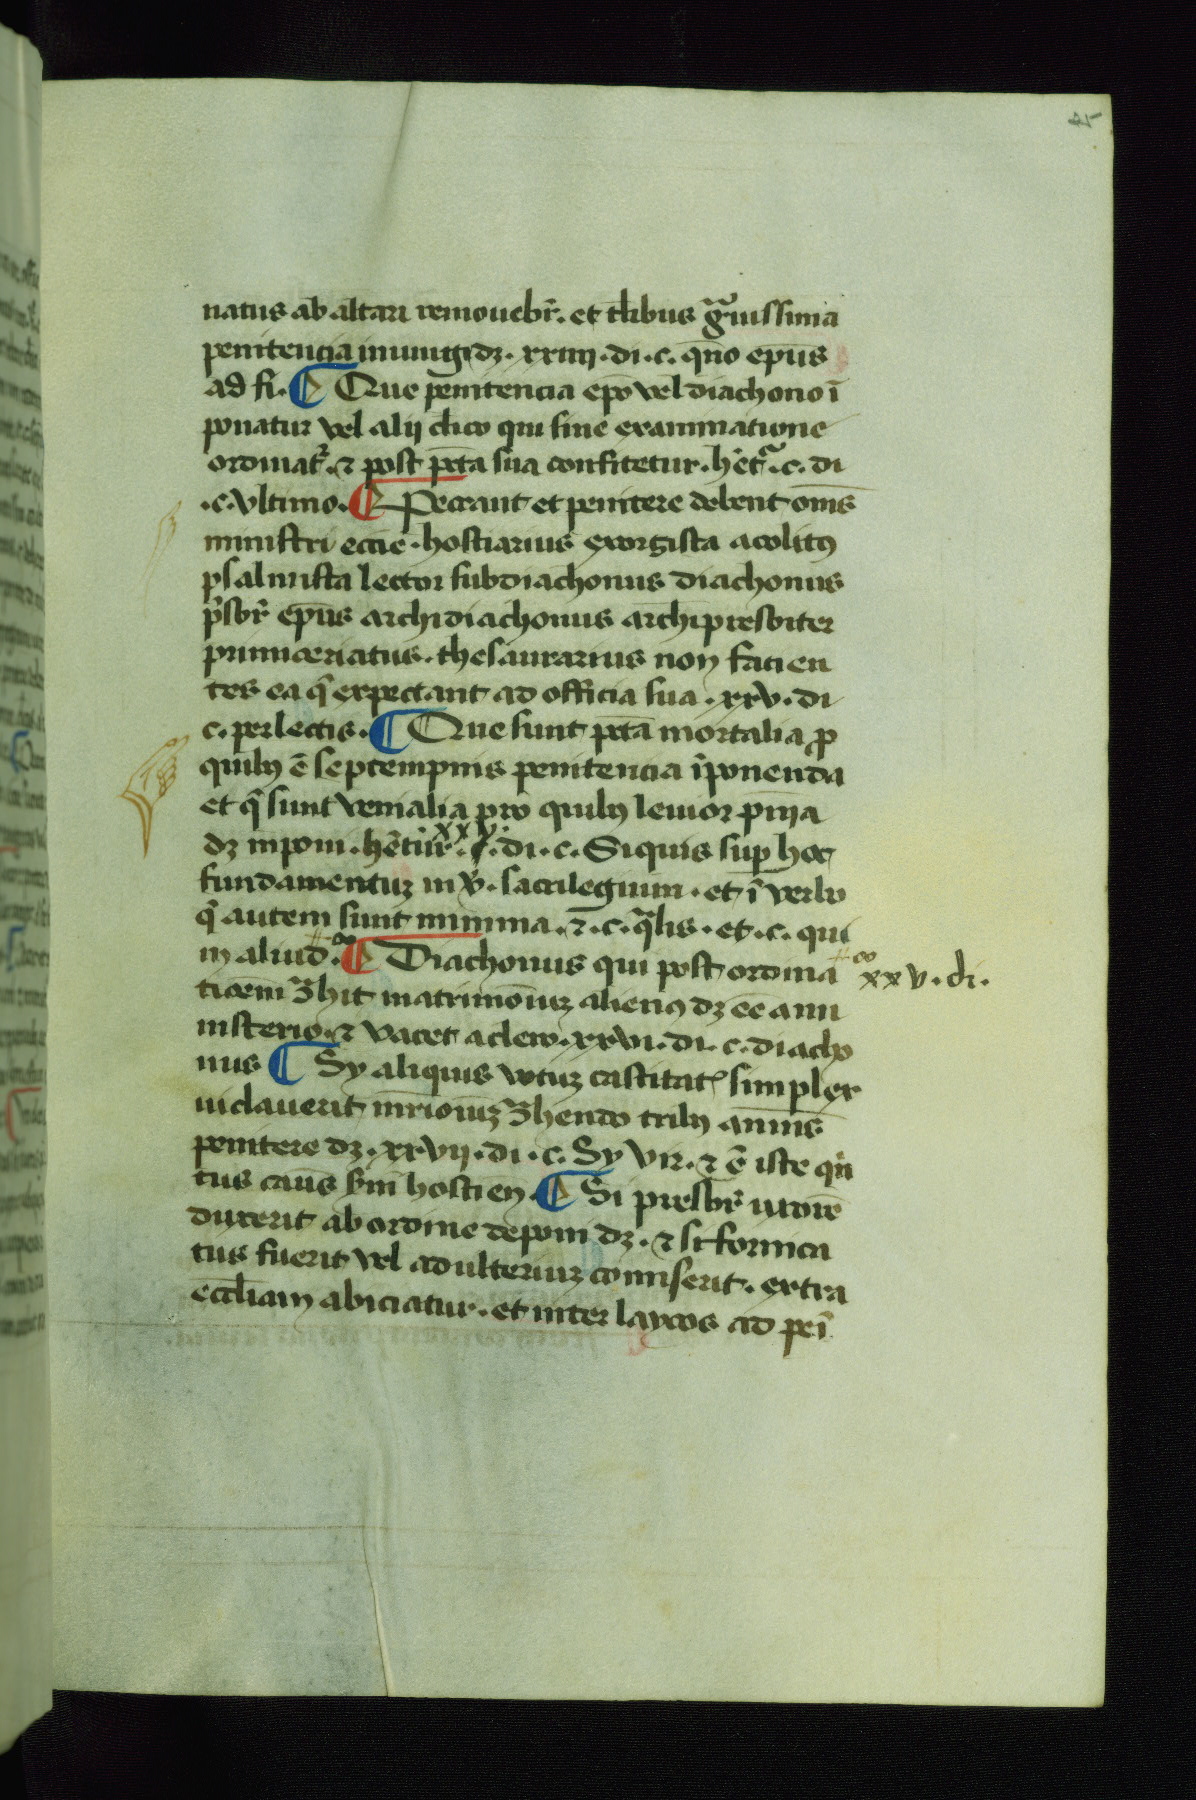 natus ab altari remouebr̄. et tl̄ibus gͣuissima
penitencia iniungidꝫ. xxiiii. di. c. qn̄o ep̄us
ad fi. ¶ Que penitencia ep̄o vel diachono ī
ponatur vel alij cl̄ico qui sine examinatione
ordinat᷑. ⁊ post pct̄a sua confitetur. hēt᷑. c. di
.c. vltimo. ¶ Peccant et penitere debent om̄s
ministri ecc̄ie. hostiarius exorgista acolitꝯ
psalmista lector subdiachonus diachonus
p̄sbr̄ ep̄us archidiachonus archipresbiter
primiceriatus. thesaurarius non facien
tes ea q̄ expectant ad officia sua. xxv. di
c. perlectis. ¶ Que sunt pct̄a mortalia ꝓ
quibꝫ ē septempnis penitencia īponenda
et q̄ sunt venialia pro quibꝫ leuior pn̄ia
dꝫ inponi. hētur. xxv. di. c. Siquis sup hoc
fundamentuꝫ in v̊. sacrilegium. et ī verbo
q̄ autem sunt minima. ⁊. c. qͣlis. et. c. qui
in aliud. ¶ Diachonus qui post ordina
xxv. di.
ticēm 9͛hit matrimōniuꝫ alienꝯ dꝫ ēe a mi
nisterio. ⁊ vacet a clero. xxvi. di. c. diacho
nus ¶ Sy aliquis votuꝫ castitat simplex
violauerit mr̄ioniuꝫ 9͛hendo tribꝫ annis
penitere dꝫ. xxvij. di. c. Sy vir. ⁊ ē iste qn̄
tus cas̄us sm̄ hostien ¶ Si presbr̄ uxorē
duxerit ab ordine deponi dꝫ. ⁊ si fornica
tus fuerit vel adulteriuꝫ comiserit. extra
eccl̄iam abiciatur. et inter laycos ad pēi